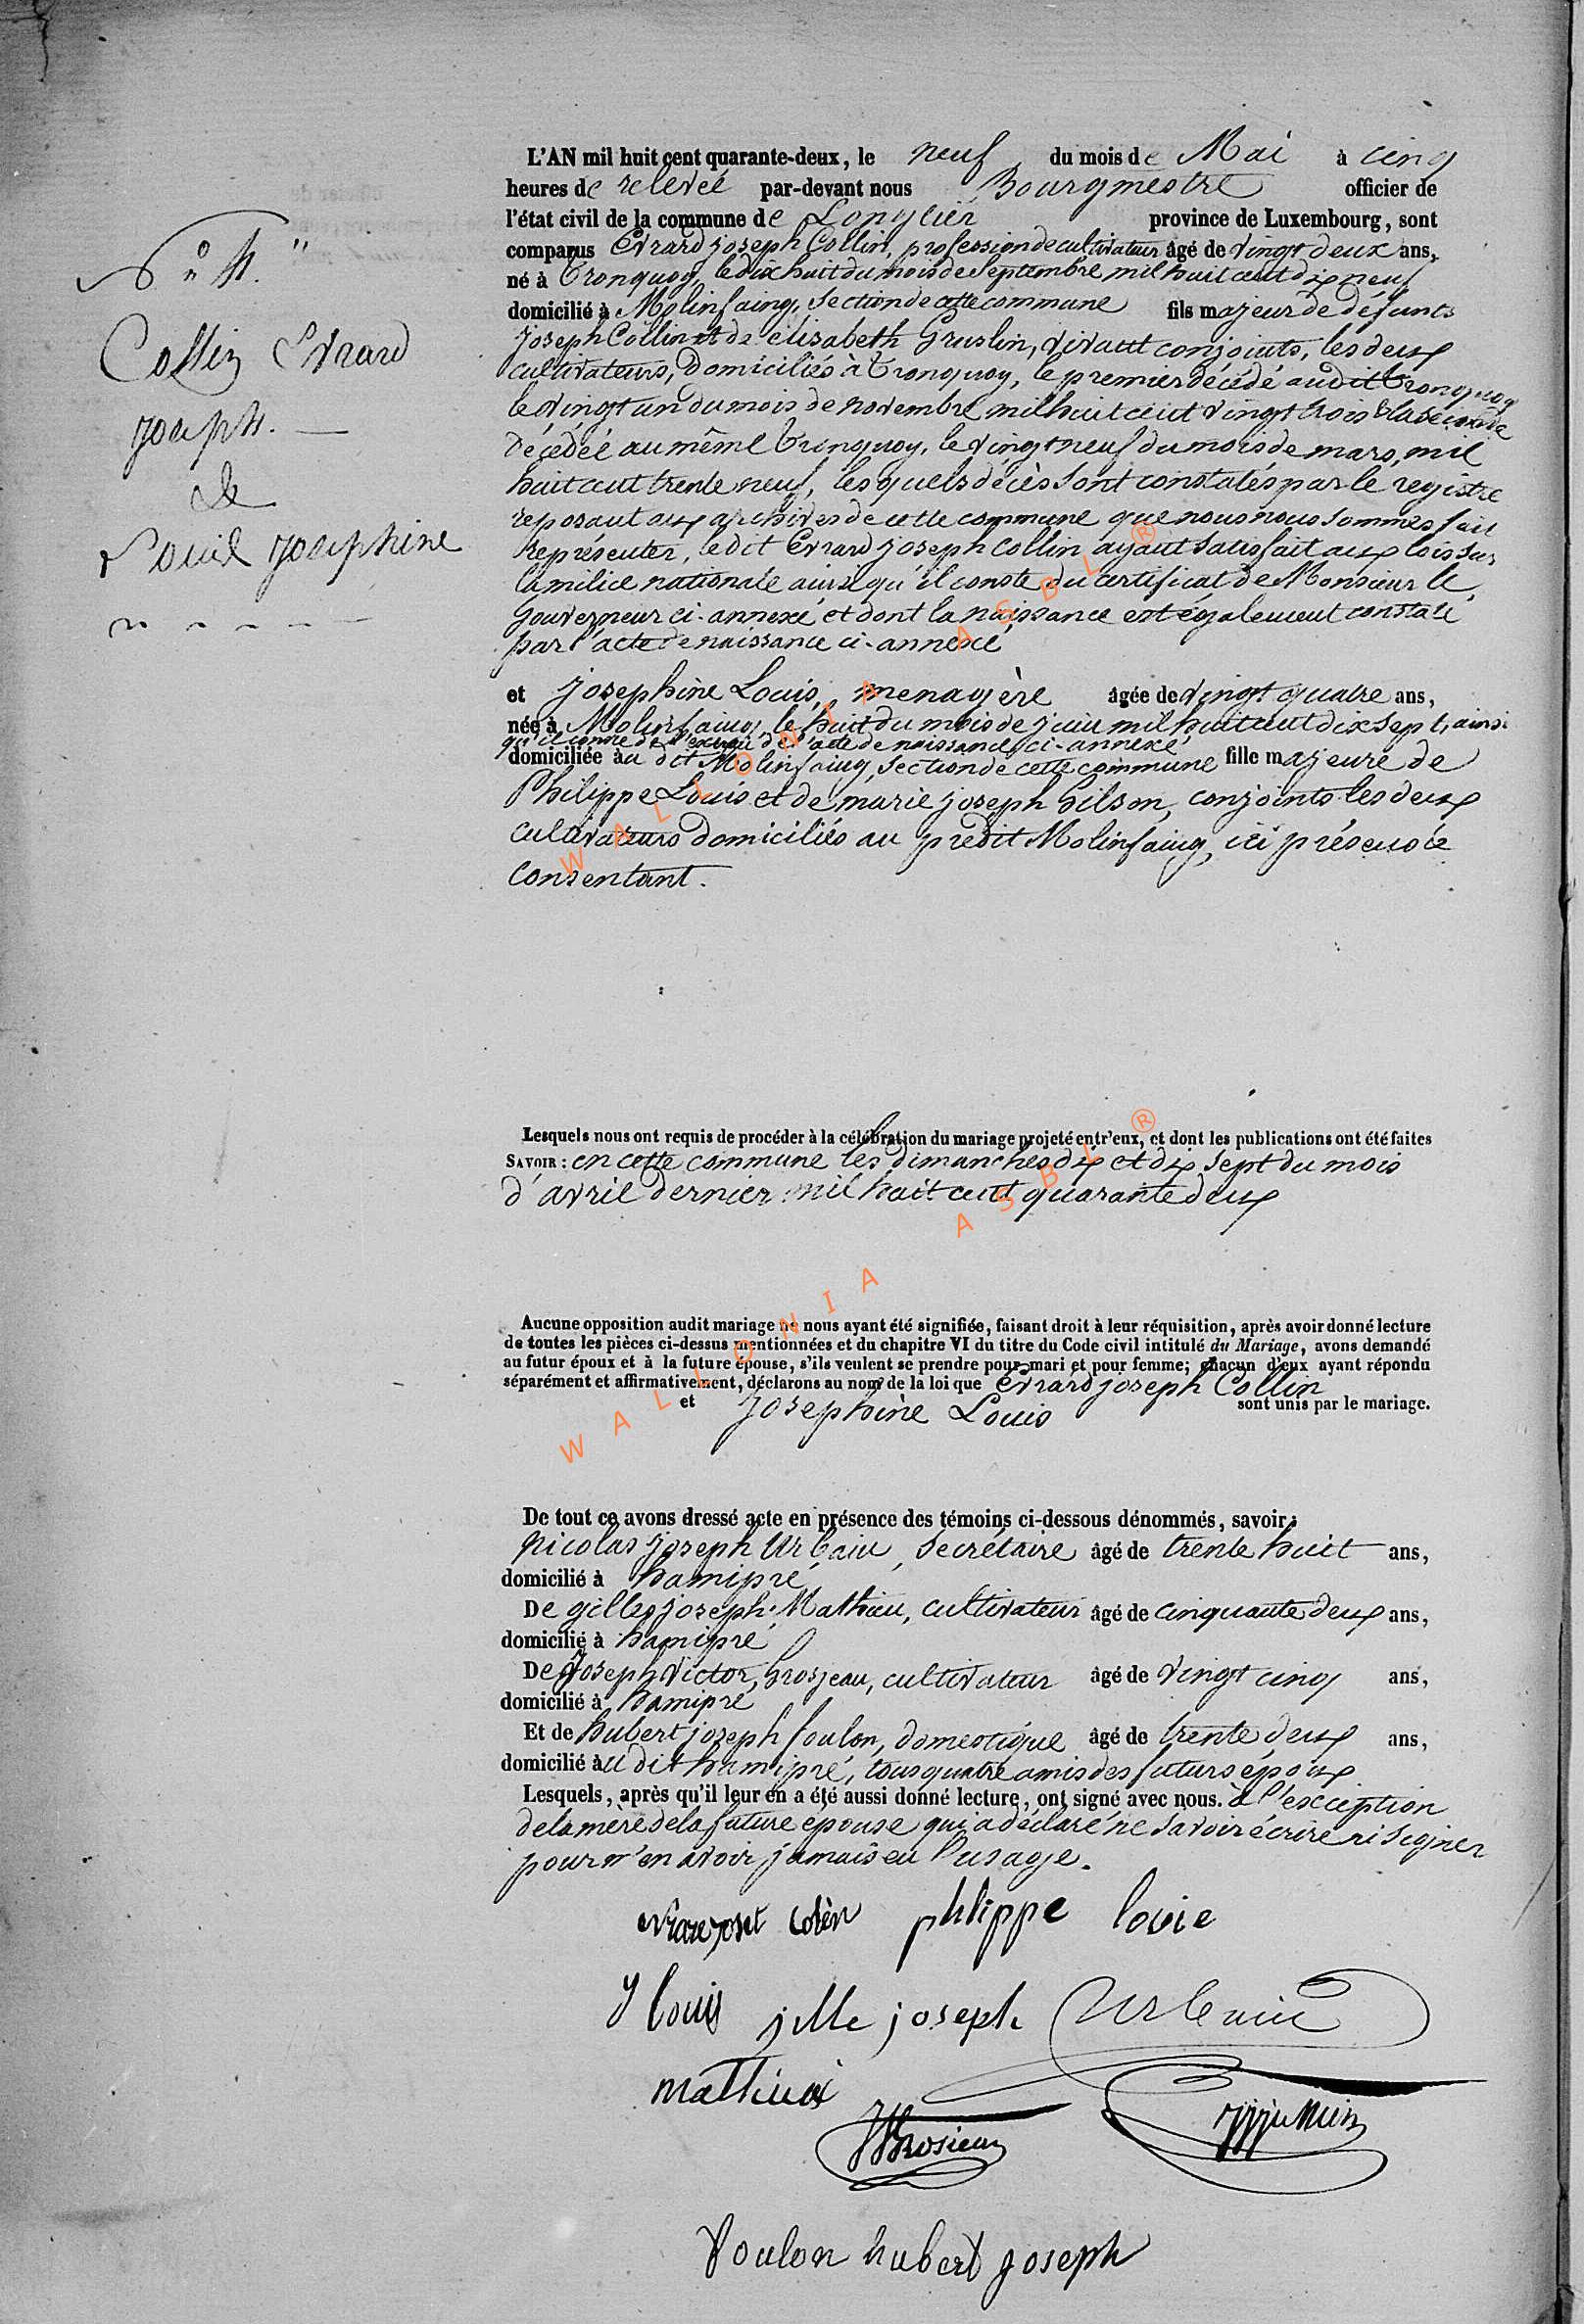 N° 4."
Collin Evrard
Joseph. —
&
Louis Josephine
L'AN mil huit cent quarante-deux, le neuf du mois de Mai à cinq
heures de relevée par-devant nous Bourgmestre officier de
l'état civil de la commune de Longlier province de Luxembourg, sont
comparus Evrard joseph Collin, profession de cultivateur âgé de vingt deux ans,
né à Tronquoy, le dix huit du mois de Septembre mil huit cent dix neuf
domicilié à Molinfaing, Section de cette commune fils majeur de défunts
Joseph Collin et de élisabeth Gruslin, vivant conjoints, les deux
cultivateurs, domiciliés à Tronquoy, le premier décédé audit Tronquoy
le vingt un du mois de novembre mil huit cent vingt trois & la seconde
décédée au même Tronquoy, le vingt neuf du mois de mars, mil
huit cent trente neuf, les quels décès sont constatés par le registre
reposant aux archives de cette commune que nous nous sommes fait
représenter, le dit Evrard joseph Collin ayant satisfait aux lois sur
la milice nationale ainsi qu'il conste du certificat de Monsieur le
Gouverneur ci-annexé et dont la naissance est également constaté
par l'acte de naissance ci-annexé
et Josephine Louis, menagère âgée de vingt quatre ans,
née à Molinfaing, le huit du mois de juin mil huit cent dix sept, ainsi
qu'il conste de l'extrait de l'acte de naissance ci-annexé
domiciliée au dit Molinfaing, section de cette commune fille majeure de
Philippe Louis et de marie joseph Gilson, conjoints les deux
cultivateurs domiciliés au predit Molinfaing, ici présens &
consentant.
Lesquels nous ont requis de procéder à la célébration du mariage projeté entr'eux, et dont les publications ont été faites
SAVOIR : en cette commune les dimanches dix et dix sept du mois
d'avril dernier mil huit cent quarante deux
Aucune opposition audit mariage ne nous ayant été signifiée, faisant droit à leur réquisition, après avoir donné lecture
de toutes les pièces ci-dessus mentionnées et du chapitre VI du titre du Code civil intitulé du Mariage, avons demandé
au futur époux et à la future épouse, s'ils veulent se prendre pour mari et pour femme; chacun d'eux ayant répondu
séparément et affirmativement, déclarons au nom de la loi que Evrard joseph Collin
et Josephine Louis sont unis par le mariage.
De tout ce avons dressé acte en présence des témoins ci-dessous dénommés, savoir :
Nicolas joseph Urbain, Secrétaire âgé de trente huit ans,
domicilié à hamipré
De gilles joseph Mathieu, cultivateur âgé de cinquante deux ans,
domicilié à hamipré
De Joseph Victor Grosjean, cultivateur âgé de vingt cinq ans,
domicilié à hamipré
Et de hubert joseph foulon, domestique âgé de trente deux ans,
domicilié audit hamipré, tous quatre amis des futurs époux
Lesquels, après qu'il leur en a été aussi donné lecture, ont signé avec nous. à l'exception
de la mère de la future épouse qui a déclaré ne savoir écrire ni signer
pour n'en avoir jamais eu l'usage.
evrare joset colèn phlippe louie
J louis jille joseph Urbain
mathieu
foulon hubert joseph
WALLONIA ASBL ®
WALLONIA ASBL ®